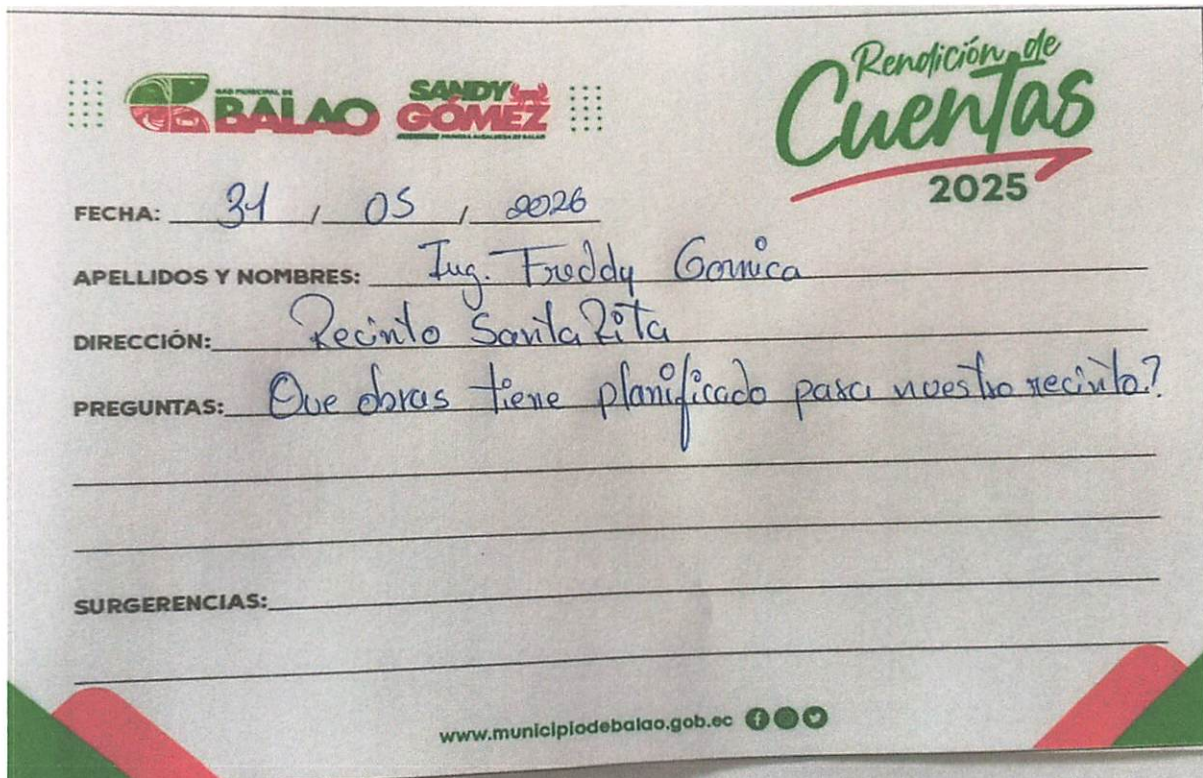 GAD MUNICIPAL DE
BALAO
SANDY
GÓMEZ
PRIMERA ALCALDESA DE BALAO
Rendición de
Cuentas
2025
FECHA: 31 / 05 / 2026
APELLIDOS Y NOMBRES: Ing. Freddy Gornica
DIRECCIÓN: Recinto Santa Rita
PREGUNTAS: Que obras tiene planificado para nuestro recinto?
SURGERENCIAS:
www.municipiodebalao.gob.ec